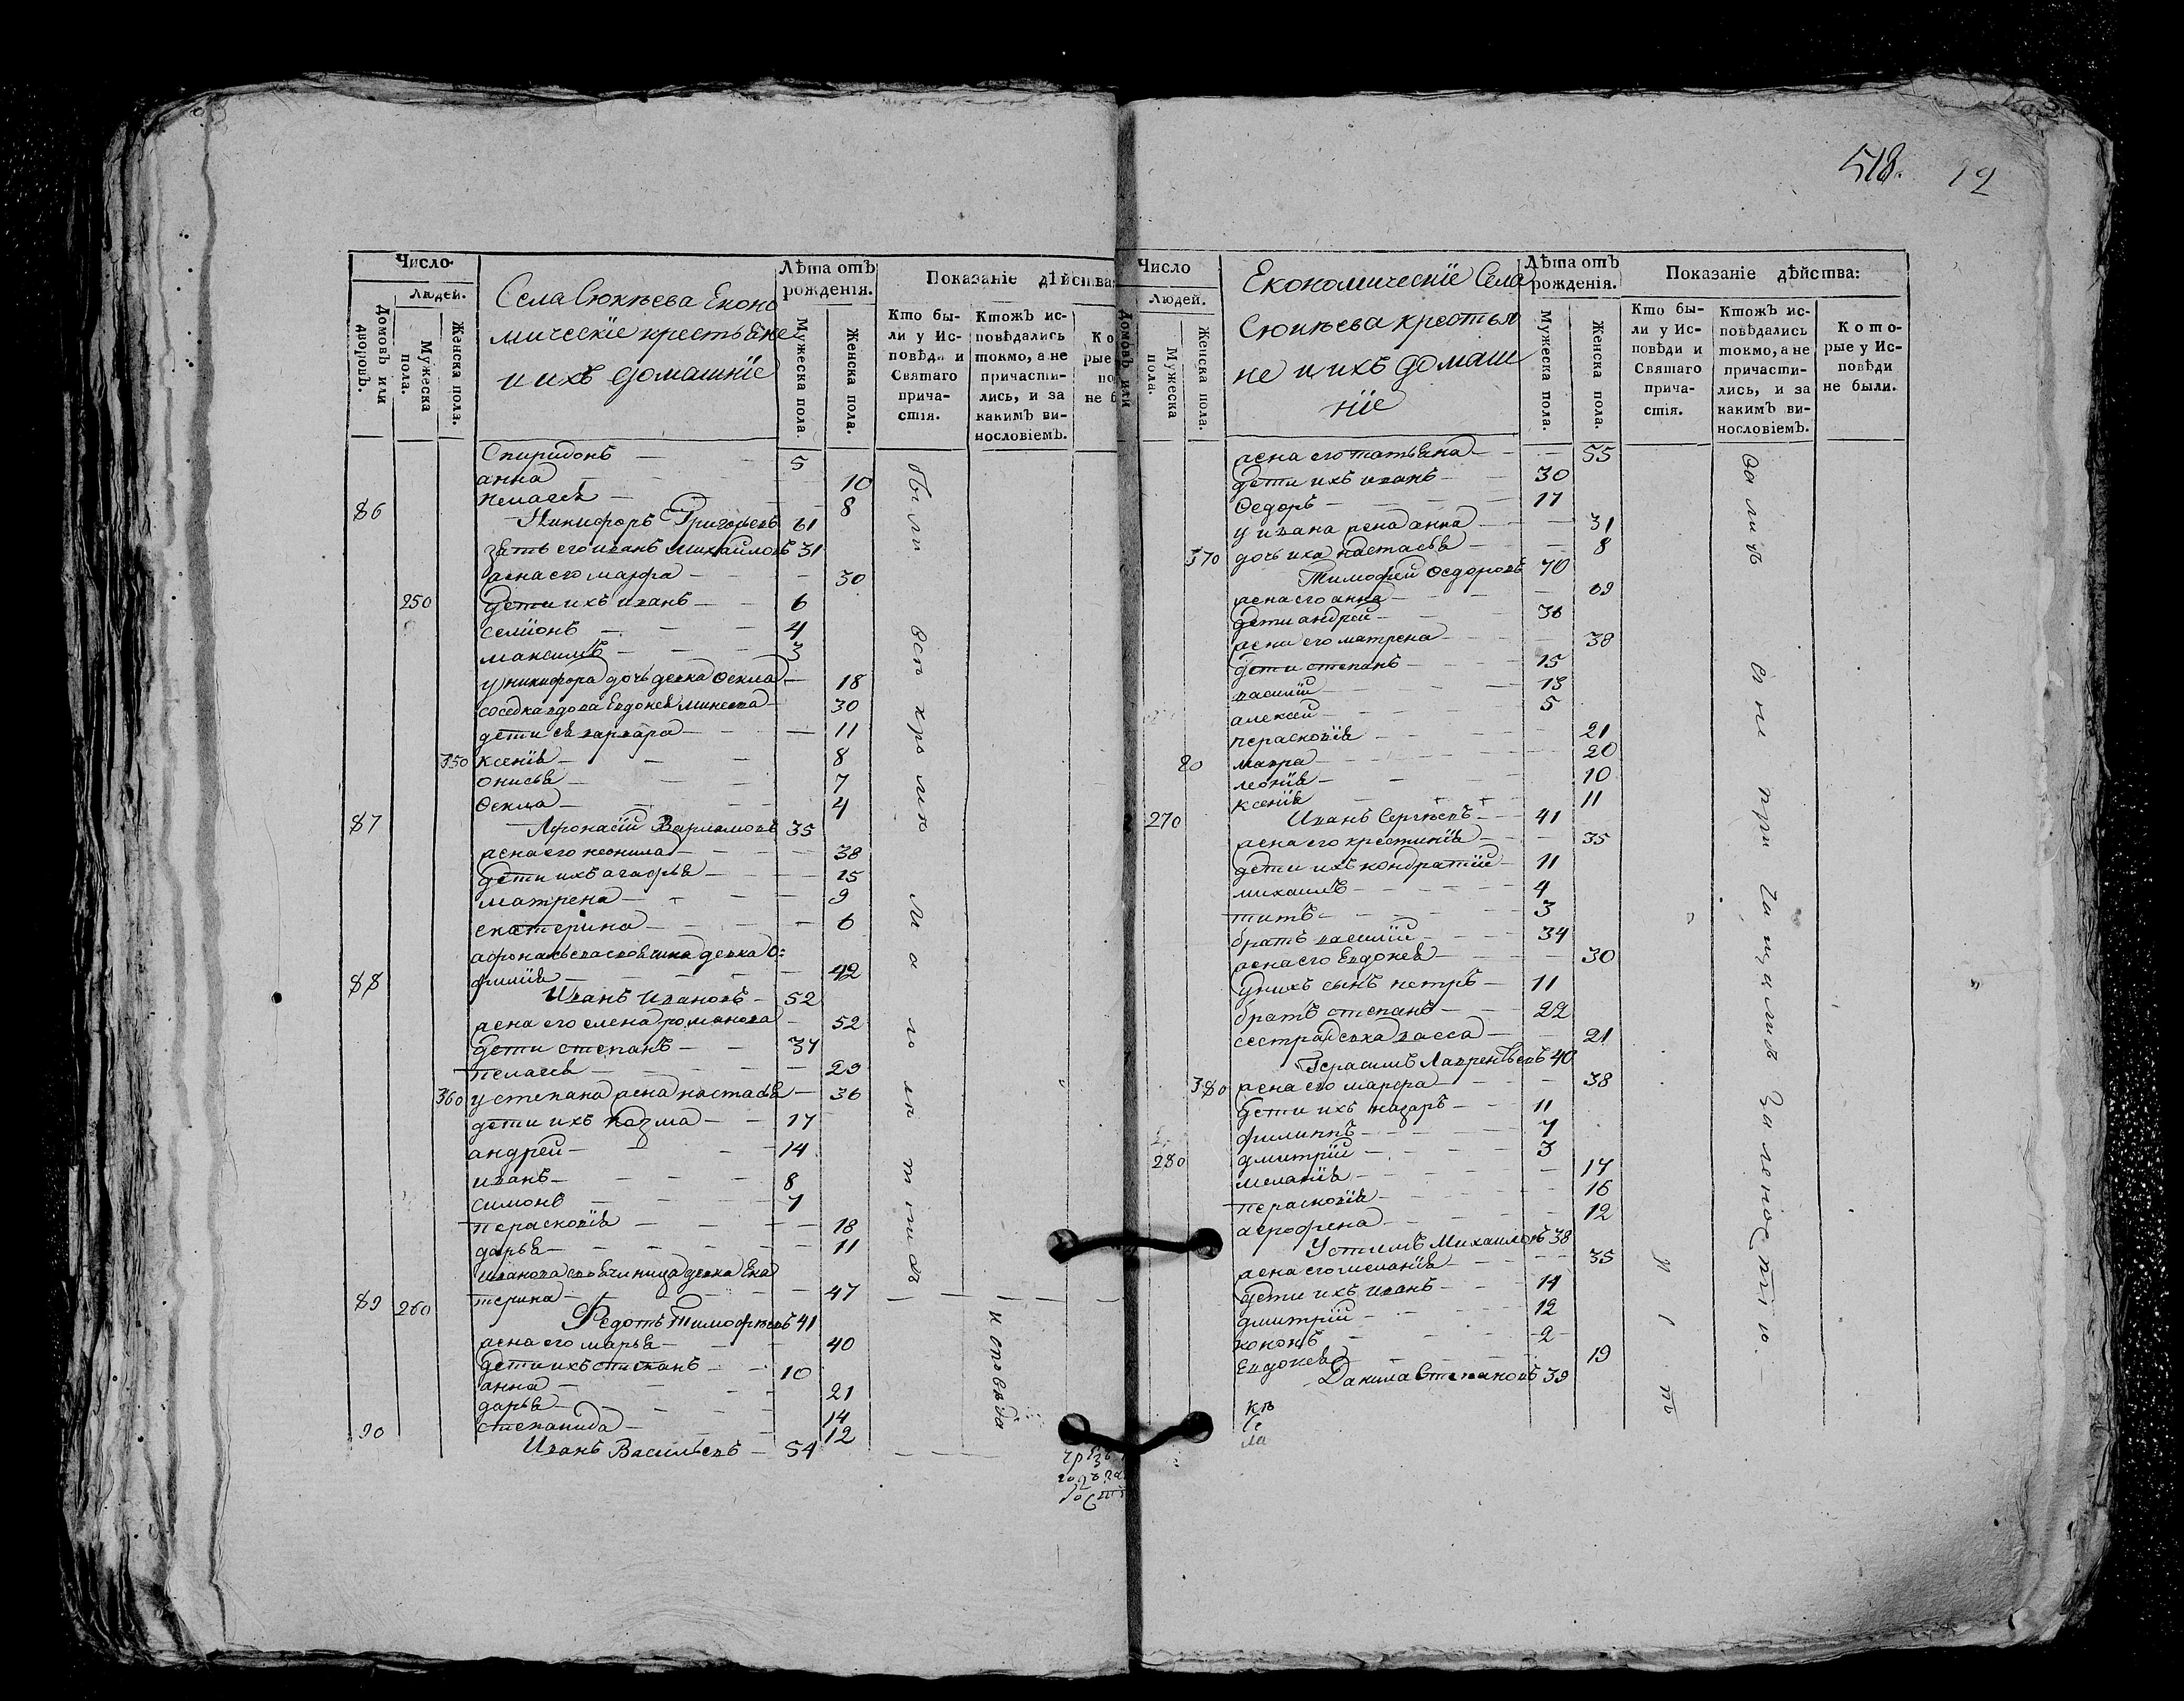 518. 12
Число
Людей.
Домовъ или дворовъ.
Мужеска пола.
Женска пола.
Села Сюкѣева Еконо
мическїе крестьяне
и ихъ домашнїе
Лѣта отъ рожденія.
Мужеска пола.
Женска пола.
Показаніе дѣйства
Кто бы-
ли у Ис-
повѣди и
Святаго
прича-
стія.
Ктожъ ис-
повѣдались
токмо, а не
причасти-
лись, и за
какимъ ви-
нословіемъ.
Спиридонъ 5
анна 10
пелагея 8
86 Никифоръ Григорьевъ 61
зять его иванъ михайловъ 31
жена его марфа 30
250 дети ихъ иванъ 6
семïонъ 4
максимъ 3
у никифора дочь девка ѳекла 18
соседка вдова Евдокея 30
дети ея варвара 11
350 ксенïя 8
онисья 7
ѳекла 4
87 Афонасïй Варламовъ 35
жена его неонила 38
дети ихъ агафья 15
матрена 9
екатерина 6
девка о:
фимïя 42
88 Иванъ Ивановъ 52
жена его елена романова 52
дети степанъ 37
пелагея 29
360 у степана жена настасья 36
дети ихъ козма 17
андрей 14
иванъ 8
симонъ 7
перасковïя 18
дарья 11
иванова своячиница девка Ека
терина 47
89 260 Ѳедотъ Тимофѣевъ 41
жена его марья 40
дети ихъ степанъ 10
анна 21
дарья 14
степанида 12
90 Иванъ Васильевъ 54
были
Число
Людей.
Домовъ или
Мужеска пола.
Женска пола.
Економическïе Села
Сюкѣева крестья
не и ихъ домаш
нïе
Лѣта отъ рожденія.
Мужеска пола.
Женска пола.
Показаніе дѣйства:
Кто бы-
ли у Ис-
повѣди и
Святаго
прича-
стія.
Ктожъ ис-
повѣдались
токмо, а не
причасти-
лись, и за
какимъ ви-
нословіемъ.
Кото-
рые у Ис-
повѣди
не были.
жена его татьяна 55
дети ихъ иванъ 30
Ѳедоръ 17
у ивана жена анна 31
370 дочь ихъ настасья 8
Тимофей Ѳедоровъ 70
жена его анна 69
дети андрей 36
жена его матрена 38
дети степанъ 15
василïй 13
алексей 5
перасковïя 21
мавра 20
10
ксенïя 11
270 Иванъ Сергѣевъ 41
жена его хрестинïя 35
дети ихъ кондратïй 11
михаилъ 4
титъ 3
братъ василïй 34
жена его Евдокея 30
у нихъ сынъ петръ 11
братъ степанъ 22
сестра девка васса 21
Герасимъ Лаврентьевъ 40
380 жена его марфа 38
дети ихъ назаръ 11
филиппъ 7
280 дмитрïй 3
меланïя 17
перасковïя 16
агрофена 12
Устимъ Михаиловъ 38
жена его меланïя 35
дети ихъ иванъ 14
дмитрïй 12
2
Евдокея 19
Данила Степановъ 39